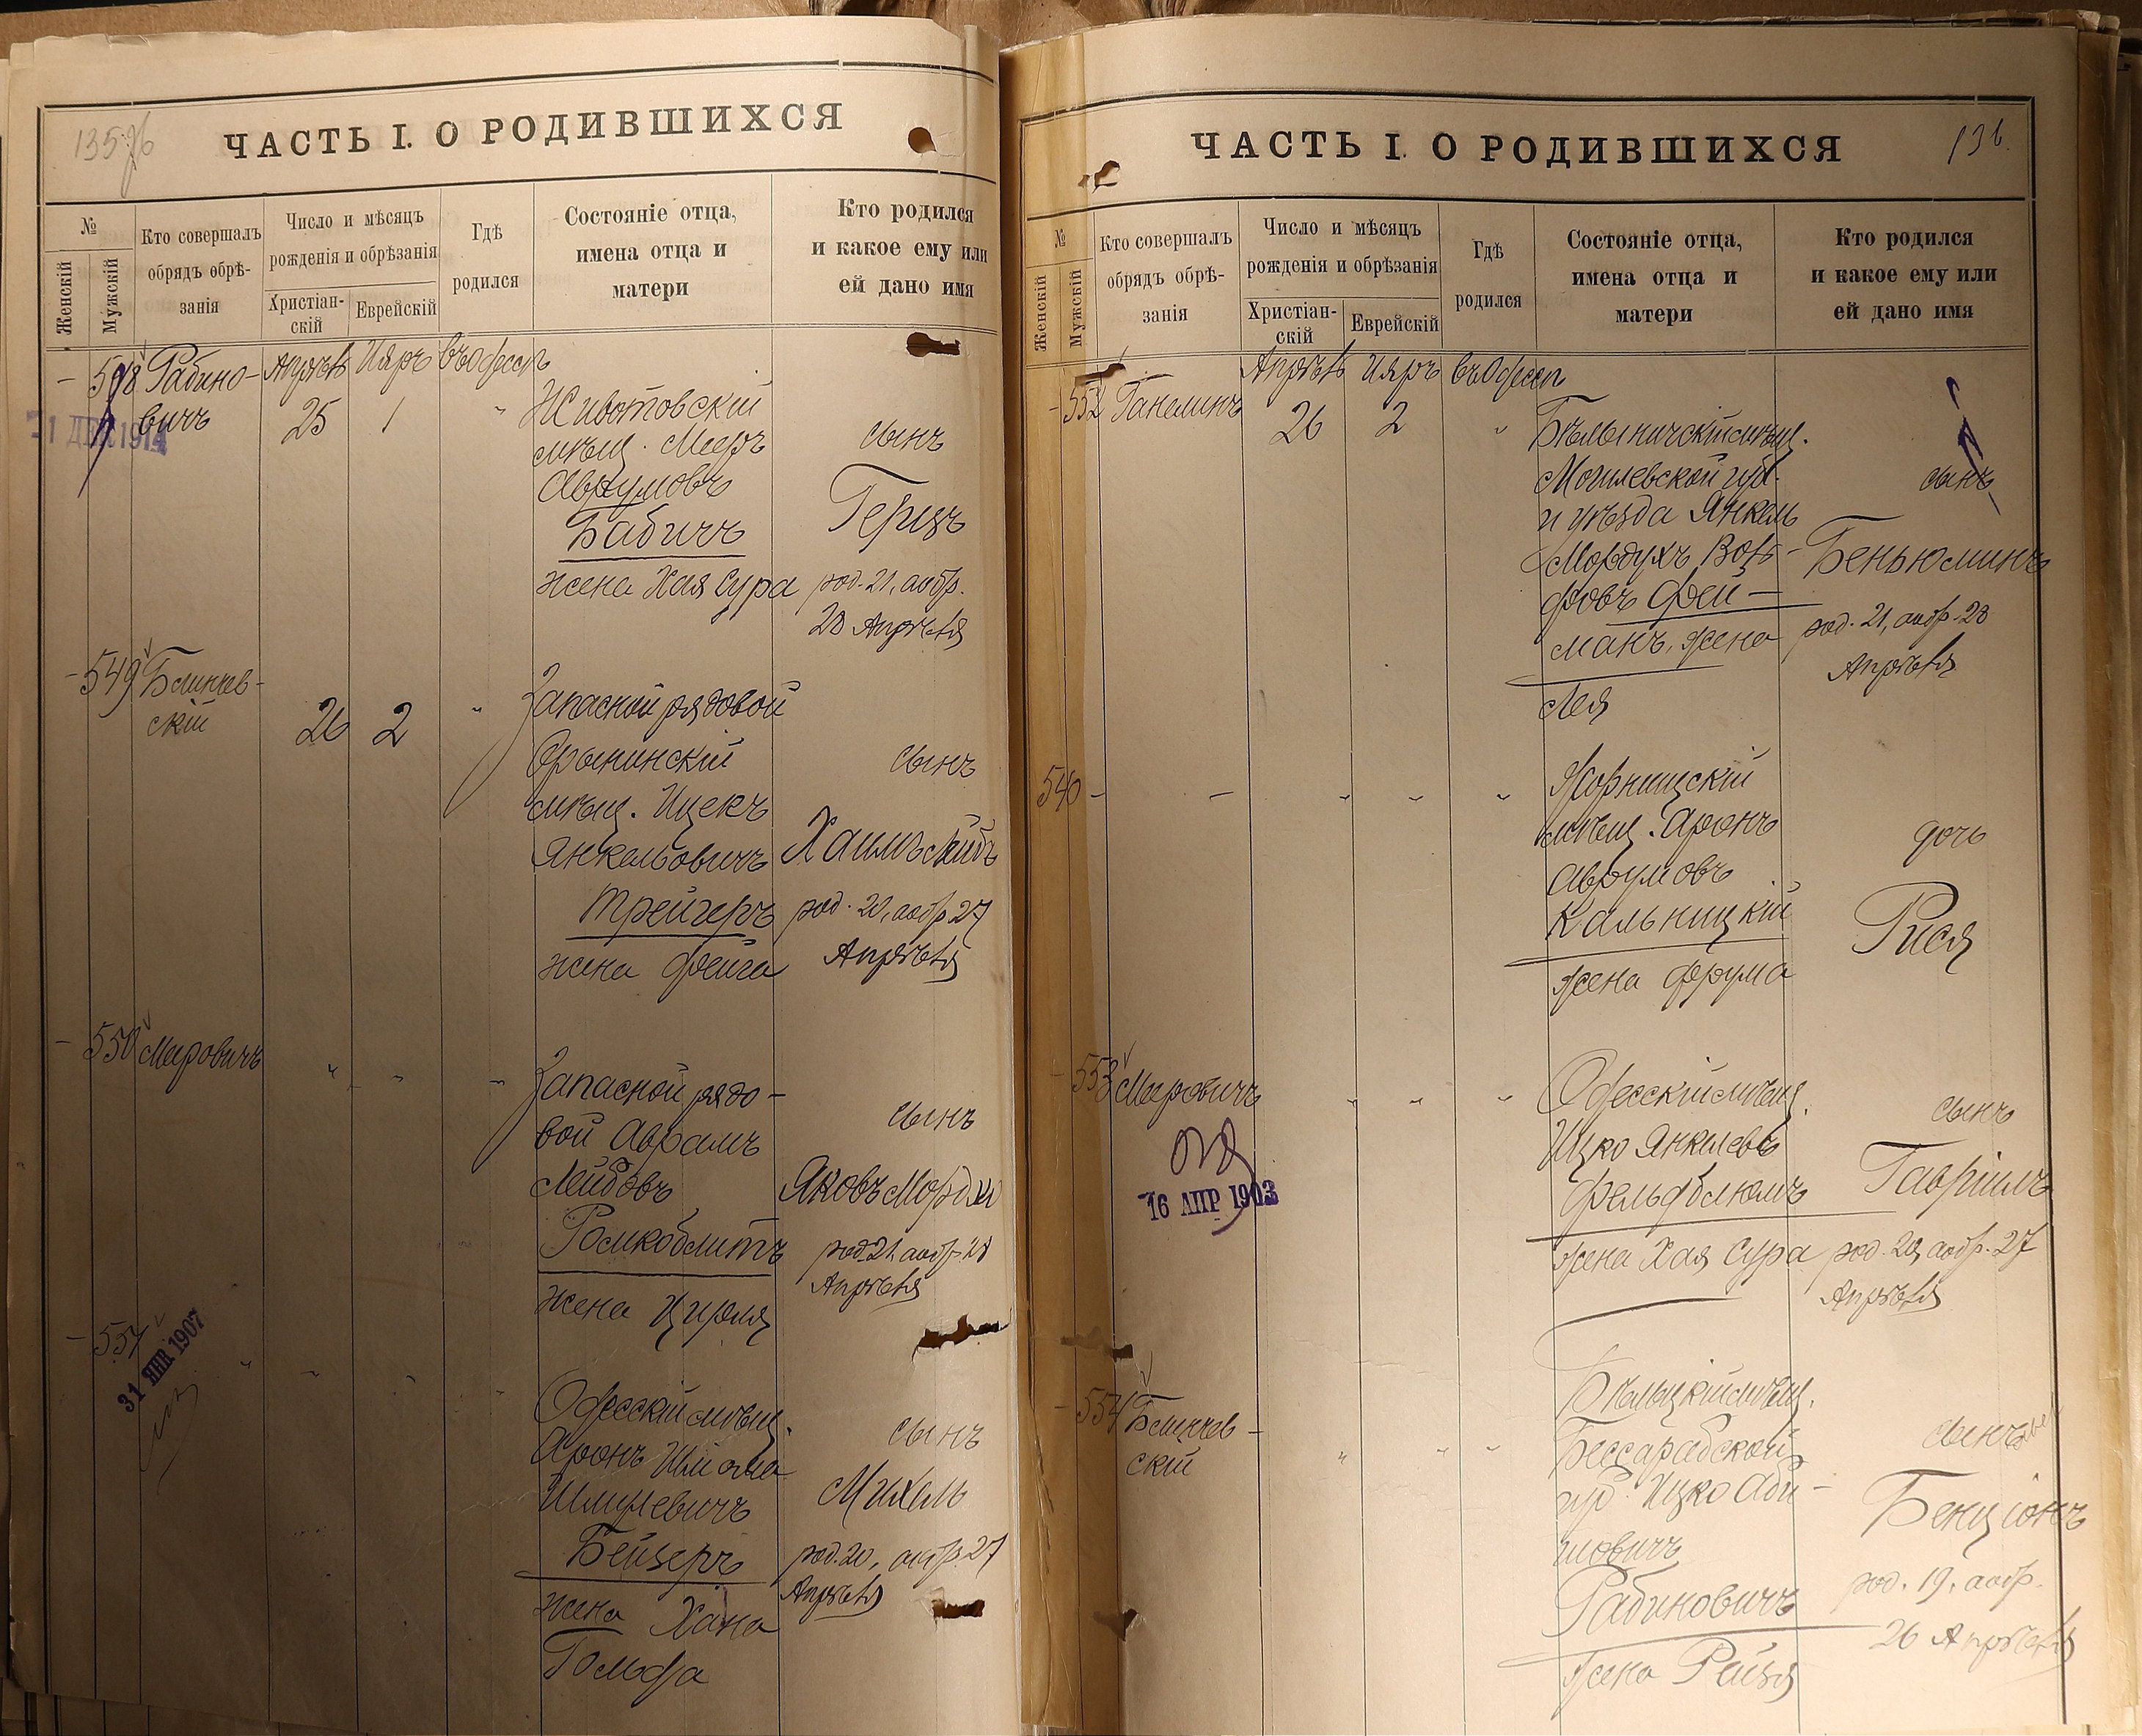 135 об
ЧАСТЬ I. О РОДИВШИХСЯ
№
Женскій
Мужскій
Кто совершалъ
обрядъ обрѣ-
занія
Число и мѣсяцъ
рожденія и обрѣзанія
Христіан-
скій
Еврейскій
Гдѣ
родился
Состояніе отца,
имена отца и
матери
Кто родился
и какое ему или
ей дано имя
548 Рабино- Апрѣль Ияръ въ Одессѣ
вичъ 25 1 "
ДЕК 1914
Животовскій
мѣщ. Мееръ
Аврумовъ
Бабичъ
жена Хая Сура
сынъ
Герцъ
род. 21, а обр.
28 Апрѣля
549 Блинчев-
скій 26 2 "
Запасной рядовой
мѣщ. Ицекъ
Янкельовичъ
Трейгеръ
жена Фейга
сынъ
Хаимъ Лейбъ
род. 20, а обр. 27
Апрѣля
550 Меировичъ " " "
Запасной рядо-
вой Аврамъ
Лейбовъ
жена Цирля
сынъ
Яковъ Мордко
род. 21, а обр. 28
Апрѣля
551 " " " "
31 ЯНВ 1907
Одесскій мѣщ.
Аронъ Шлиома
Шмулевичъ
Бейзеръ
жена Хана
Гольда
сынъ
Михель
род. 20, а обр. 27
Апрѣля
136.
ЧАСТЬ I. О РОДИВШИХСЯ
№
Женскій
Мужскій
Кто совершалъ
обрядъ обрѣ-
занія
Число и мѣсяцъ
рожденія и обрѣзанія
Христіан-
скій
Еврейскій
Гдѣ
родился
Состояніе отца,
имена отца и
матери
Кто родился
и какое ему или
ей дано имя
Апрѣль Ияръ въ Одессѣ
552 Ганелинъ 26 2 "
Бѣлыничскій мѣщ.
Могилевской губ.
и уѣзда Янкель
Мордухъ Воль-
фовъ Фей-
манъ, жена
Лея
сынъ
Беньюминъ
род. 21, а обр. 28
Апрѣля
540 - - " " "
мѣщ. Аронъ
Аврумовъ
Кальницкій
жена Фрума
дочь
Рися
553 Меировичъ " " "
16 АПР 1903
Одесскій мѣщ.
Ицко Янкелевъ
Фельдблюмъ
жена Хая Сура
сынъ
Гавріилъ
род. 20, а обр. 27
Апрѣля
554 Блинчев-
скій " " "
Бѣльцкій мѣщ.
Бессарабской
губ. Ицко Аби-
шовичъ
Рабиновичъ
жена Рейзя
сынъ
Бенціонъ
род. 19, а обр.
26 Апрѣля